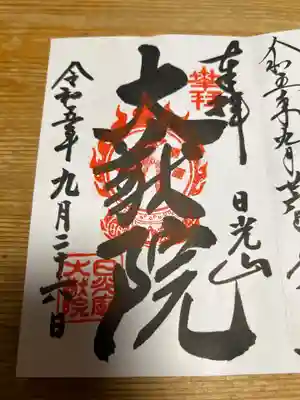 令和五年九月
奉拝
日光山
大猷院
令和五年九月二十六日
日光山
大猷院